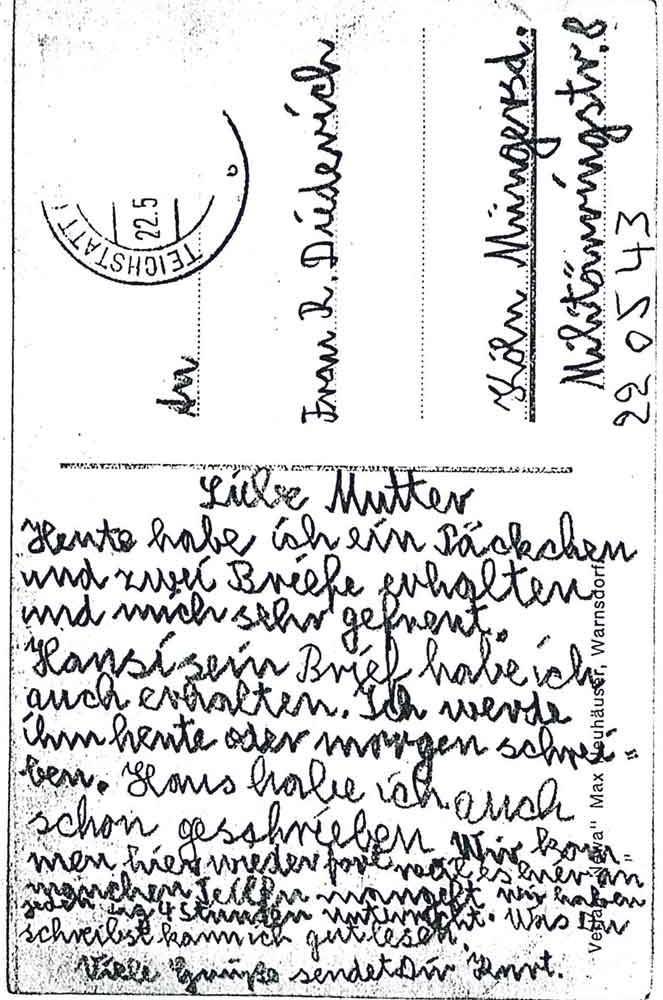 TEICHSTATT
22.5
An
Frau R. Diederich
Köln Müngersd.
Militärringstr. 8
22 05 43
Liebe Mutter
Heute habe ich ein Päckchen
und zwei Briefe erhalten
und mich sehr gefreut.
Hansi sein Brief habe ich
auch erhalten. Ich werde
ihm heute oder morgen schrei=
ben. Hans habe ich auch
schon geschrieben. Wir kom=
men hier wieder fort weil es hier an
manchen Teilen mangelt wir haben
jeden Tag 4 Stunden unterricht. Was Du
schreibst kann ich gut lesen.
Viele Grüße sendet Dir Kurt.
Max Neuhäuser, Warnsdorf